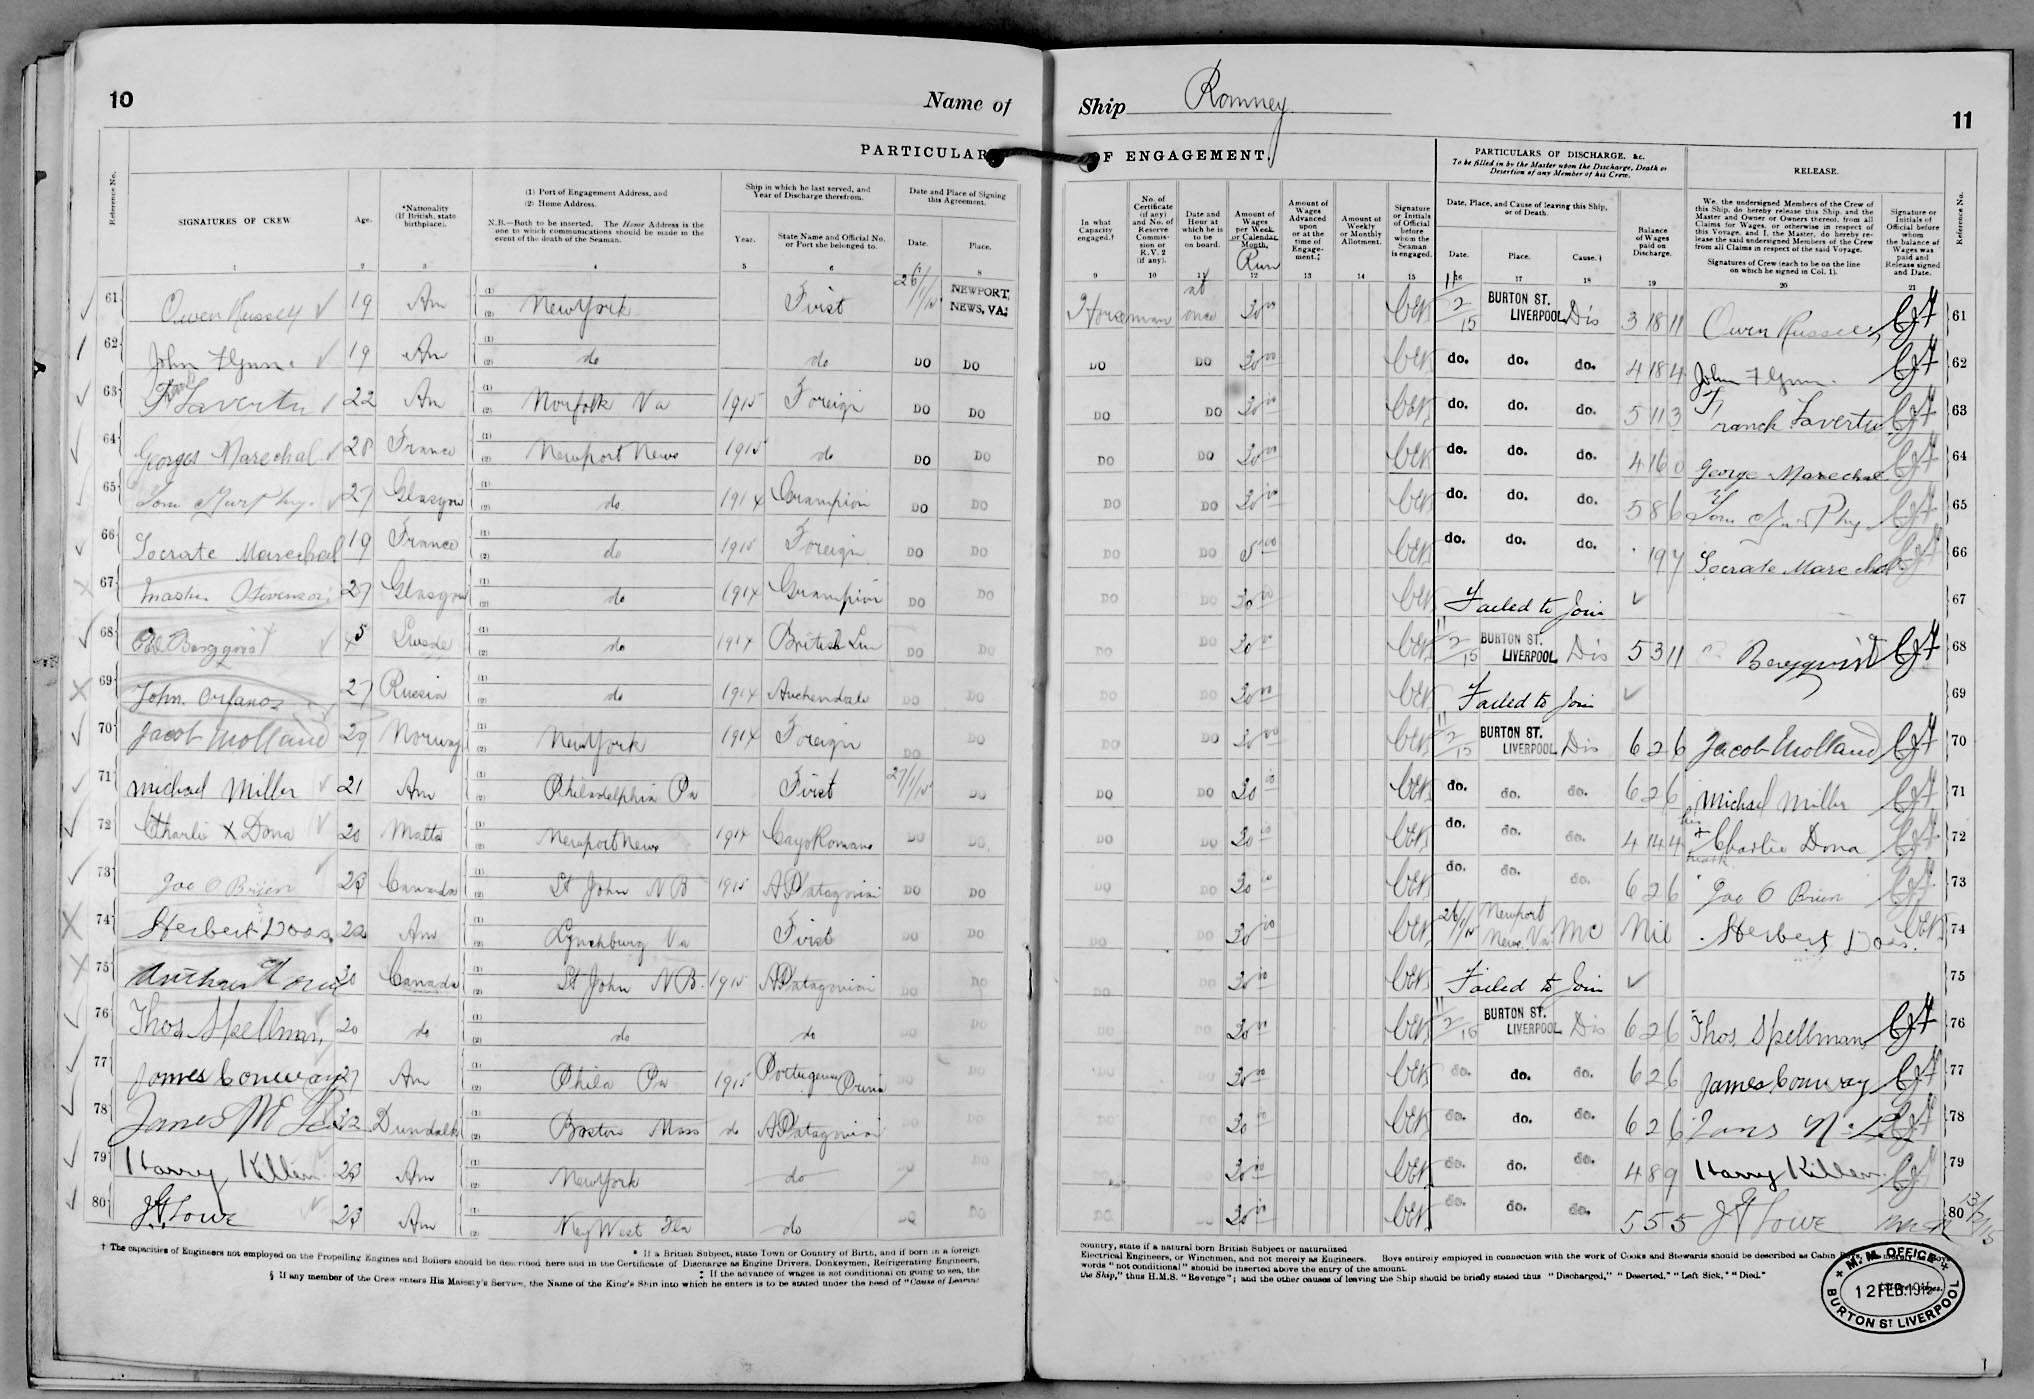 10
Name of
Ship Romney
11
PARTICULARS
OF ENGAGEMENT.
PARTICULARS OF DISCHARGE, &c.
To be filled in by the Master upon the Discharge, Death or
Desertion of any Member of his Crew.
RELEASE.
Reference No.
SIGNATURES OF CREW
Age.
*Nationality
(If British, state
birthplace).
(1) Port of Engagement Address, and
(2) Home Address.
N.B.—Both to be inserted. The Home Address is the
one to which communications should be made in the
event of the death of the Seaman.
Ship in which he last served, and
Year of Discharge therefrom.
Year.
State Name and Official No.
or Port she belonged to.
Date and Place of Signing
this Agreement.
Date.
Place.
In what
Capacity
engaged.†
No. of
Certificate
(if any)
and No. of
Reserve
Commis-
sion or
R.V. 2
(if any).
Date and
Hour at
which he is
to be
on board.
Amount of
Wages
per Week
or Calendar
Month.
Run
Amount of
Wages
Advanced
upon
or at the
time of
Engage-
ment.‡
Amount of
Weekly
or Monthly
Allotment.
Signature
or Initials
of Official
before
whom the
Seaman
is engaged.
Date, Place, and Cause of leaving this Ship,
or of Death.
Date.
Place.
Cause.§
Balance
of Wages
paid on
Discharge.
We, the undersigned Members of the Crew of
this Ship, do hereby release this Ship, and the
Master and Owner or Owners thereof, from all
Claims for Wages, or otherwise in respect of
this Voyage, and I, the Master, do hereby re-
lease the said undersigned Members of the Crew
from all Claims in respect of the said Voyage.
Signatures of Crew (each to be on the line
on which he signed in Col. 1).
Signature or
Initials of
Official before
whom
the balance of
Wages was
paid and
Release signed
and Date.
Reference No.
1 2 3 4 5 6 8 9 10 11 12 13 14 15 16 17 18 19 20 21
61 Owen Russell 19 Am (1) (2) New York First 26/1/15 NEWPORT NEWS, VA. Horseman at once 30 00 11/2/15 BURTON ST. LIVERPOOL Dis 3 18 11 Owen Russell 61
62 John Flynn 19 Am (1) (2) do do DO DO DO DO 30 00 do. do. do. 4 18 4 John Flynn 62
63 Lavertu 22 Am (1) (2) Norfolk Va 1915 Foreign DO DO DO DO 30 00 do. do. do. 5 11 3 Franck Lavertu 63
64 Georges Marechal 28 France (1) (2) Newport News 1915 do DO DO DO DO 30 00 do. do. do. 4 16 0 George Marechal 64
65 Tom Murphy 27 Glasgow (1) (2) do 1914 Grampion DO DO DO DO 30 00 do. do. do. 5 8 6 Tom Murphy 65
66 Socrate Marechal 19 France (1) (2) do 1915 Foreign DO DO DO DO 5 00 do. do. do. 19 7 Socrate Marechal 66
67 Stevenson 27 Glasgow (1) (2) do 1914 Grampion DO DO DO DO 30 00 Failed to Join 67
68 Bergqvist 45 (1) (2) do 1914 British DO DO DO DO 30 00 11/2/15 BURTON ST. LIVERPOOL Dis 5 3 11 Bergqvist 68
69 John Orfanos 27 Russia (1) (2) do 1914 Auchendale DO DO DO DO 30 00 Failed to Join 69
70 Jacob Molland 29 Norway (1) (2) New York 1914 Foreign DO DO DO DO 30 00 11/2/15 BURTON ST. LIVERPOOL Dis 6 2 6 Jacob Molland 70
71 Michael Miller 21 Am (1) (2) Philadelphia Pa First 27/1/15 DO DO DO 30 00 do. do. do. 6 2 6 Michael Miller 71
72 Charlie X Dona 20 Malta (1) (2) Newport News 1914 Cayo Romano DO DO DO DO 30 00 do. do. do. 4 14 4 his + mark Charlie Dona 72
73 Joe O Brien 28 Canada (1) (2) St John N B 1915 A Patagonian DO DO DO DO 30 00 do. do. do. 6 2 6 Joe O Brien 73
74 Herbert Doss 22 Am (1) (2) Lynchburg Va First DO DO DO DO 30 00 26/1/15 Newport News Va MC Nil Herbert Doss 74
75 Arthur 20 Canada (1) (2) St John N B. 1915 A Patagonian DO DO DO DO 30 00 Failed to Join 75
76 Thos Spellman 20 do (1) (2) do do DO DO DO DO 30 00 11/2/15 BURTON ST. LIVERPOOL Dis 6 2 6 Thos Spellman 76
77 James Conway 27 Am (1) (2) Phila Pa 1915 Portuguese Prince DO DO DO DO 30 00 do. do. do. 6 2 6 James Conway 77
78 James Mc 22 Dundalk (1) (2) Boston Mass do A Patagonian DO DO DO DO 30 00 do. do. do. 6 2 6 78
79 Harry Killen 28 Am (1) (2) New York do DO 30 00 do. do. do. 4 8 9 Harry Killen 79
80 J H Lowe 28 Am (1) (2) Key West Fla do DO DO DO DO 30 00 do. do. do. 5 5 5 J H Lowe 13/2/15 80
* If a British Subject, state Town or Country of Birth, and if born in a foreign
country, state if a natural born British Subject or naturalized
† The capacities of Engineers not employed on the Propelling Engines and Boilers should be described here and in the Certificate of Discharge as Engine Drivers, Donkeymen, Refrigerating Engineers,
Electrical Engineers, or Winchmen, and not merely as Engineers. Boys entirely employed in connection with the work of Cooks and Stewards should be described as Cabin Boys,
‡ If the advance of wages is not conditional on going to sea, the
words "not conditional" should be inserted above the entry of the amount.
§ If any member of the Crew enters His Majesty's Service, the Name of the King's Ship into which he enters is to be stated under the head of "Cause of Leaving
the Ship," thus H.M.S. "Revenge"; and the other causes of leaving the Ship should be briefly stated thus "Discharged," "Deserted," "Left Sick," "Died."
M.M. OFFICE
12 FEB. 1915
BURTON ST LIVERPOOL